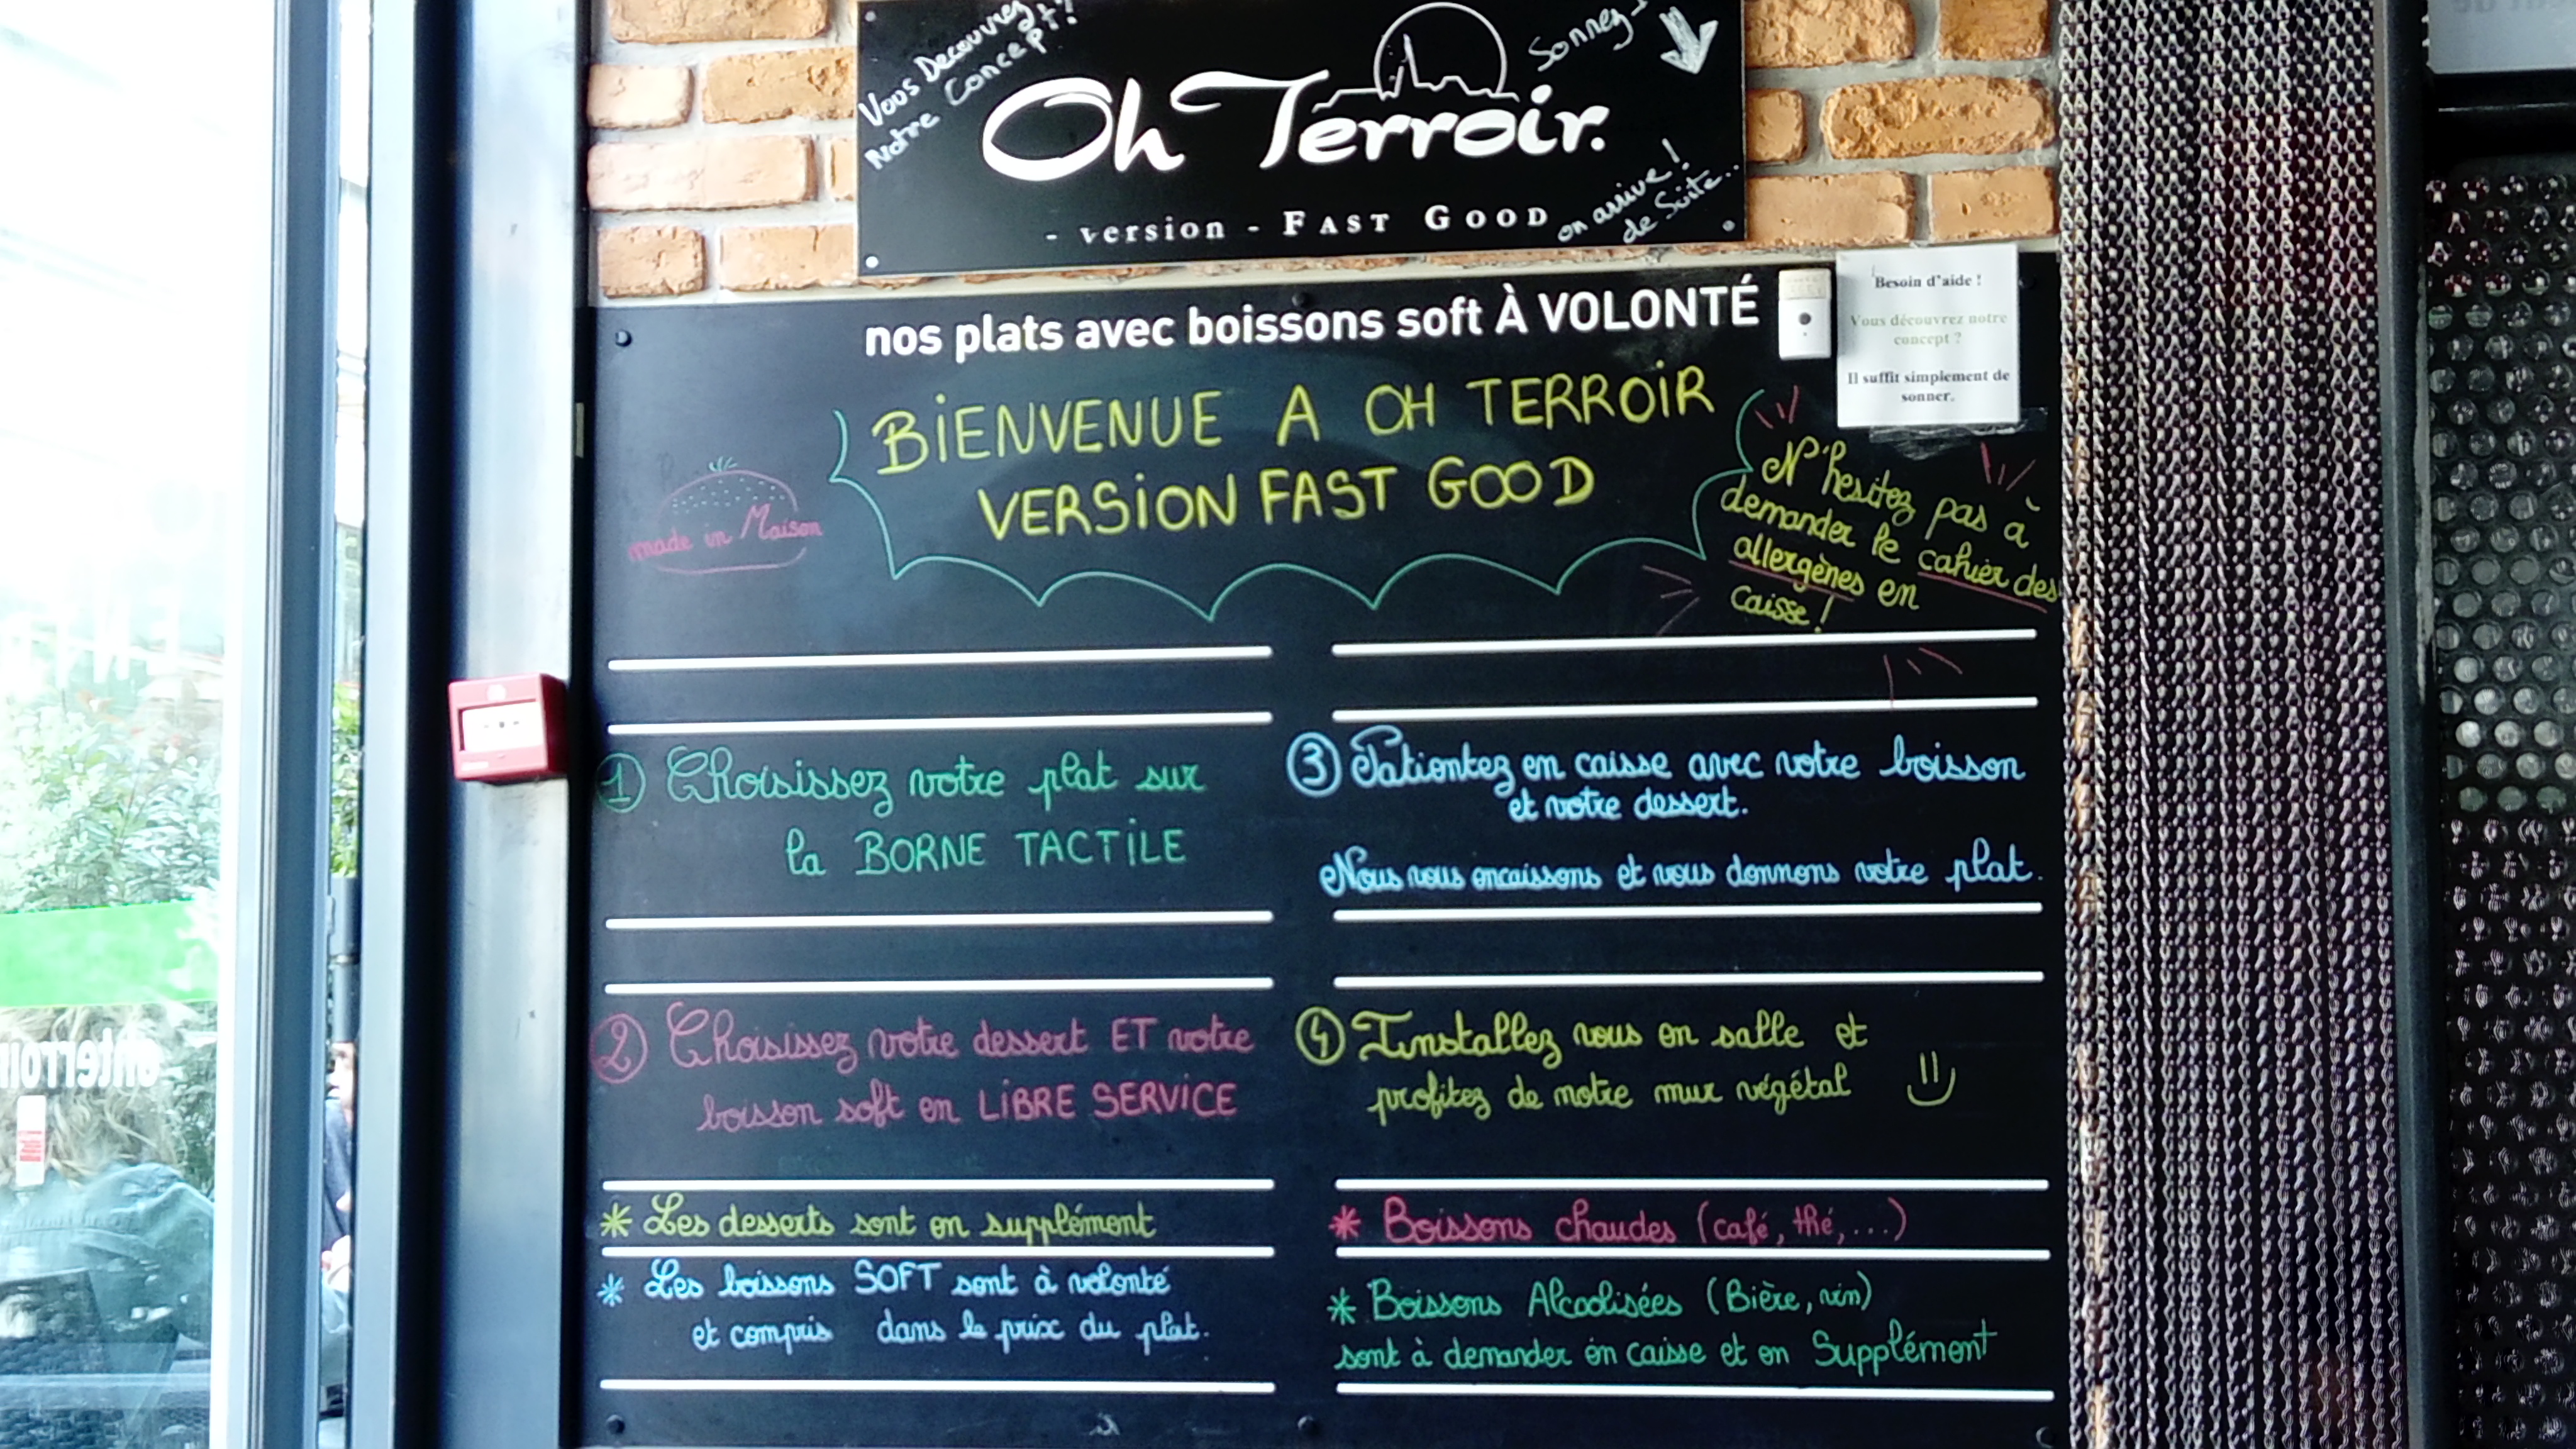 Vous Decouvrez
Notre Concept?
Sonnez
Oh Terroir.
on arrive!
de Suite..
- version - FAST GOOD
nos plats avec boissons soft À VOLONTÉ
Besoin d'aide !
Vous découvrez notre
concept ?
Il suffit simplement de
sonner.
BiENVENUE A OH TERROiR
VERSiON FAST GOOD
made in Maison
N'hesitez pas à
demander le cahier des
allergènes en
caisse !
1 Choisissez votre plat sur
la BORNE TACTiLE
2 Choisissez votre dessert ET votre
boisson soft en LiBRE SERViCE
* Les desserts sont en supplément
* Les boissons SOFT sont à volonté
et compris dans le prix du plat.
3 Patientez en caisse avec votre boisson
et votre dessert.
Nous vous encaissons et vous donnons votre plat.
4 Installez vous en salle et
profitez de notre mur végétal
* Boissons chaudes (café, thé, ...)
* Boissons Alcoolisées (Bière, vin)
sont à demander en caisse et en Supplément